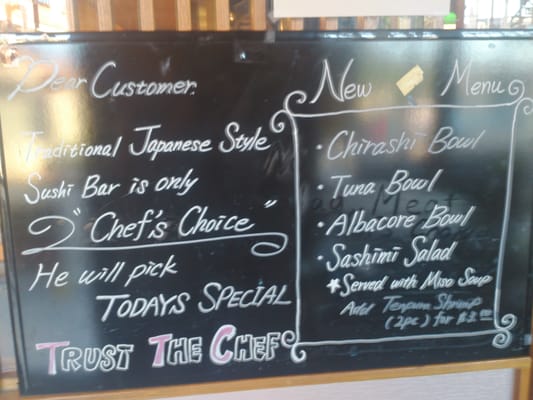 Dear Customer
Traditional Japanese Style
Sushi Bar is only
"Chef's Choice"
He will pick
TODAYS SPECIAL
TRUST THE CHEF
New Menu
• Chirashi Bowl
• Tuna Bowl
• Albacore Bowl
• Sashimi Salad
★Served with Miso Soup
Add Tempura Shrimp
(2pc) for $3.00